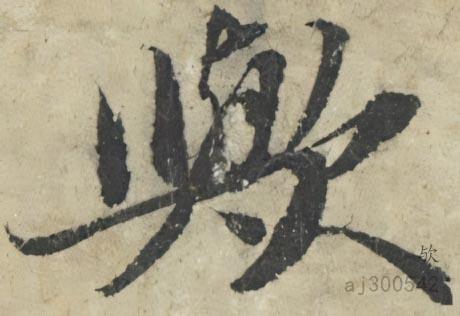 歟
欤
aj300542